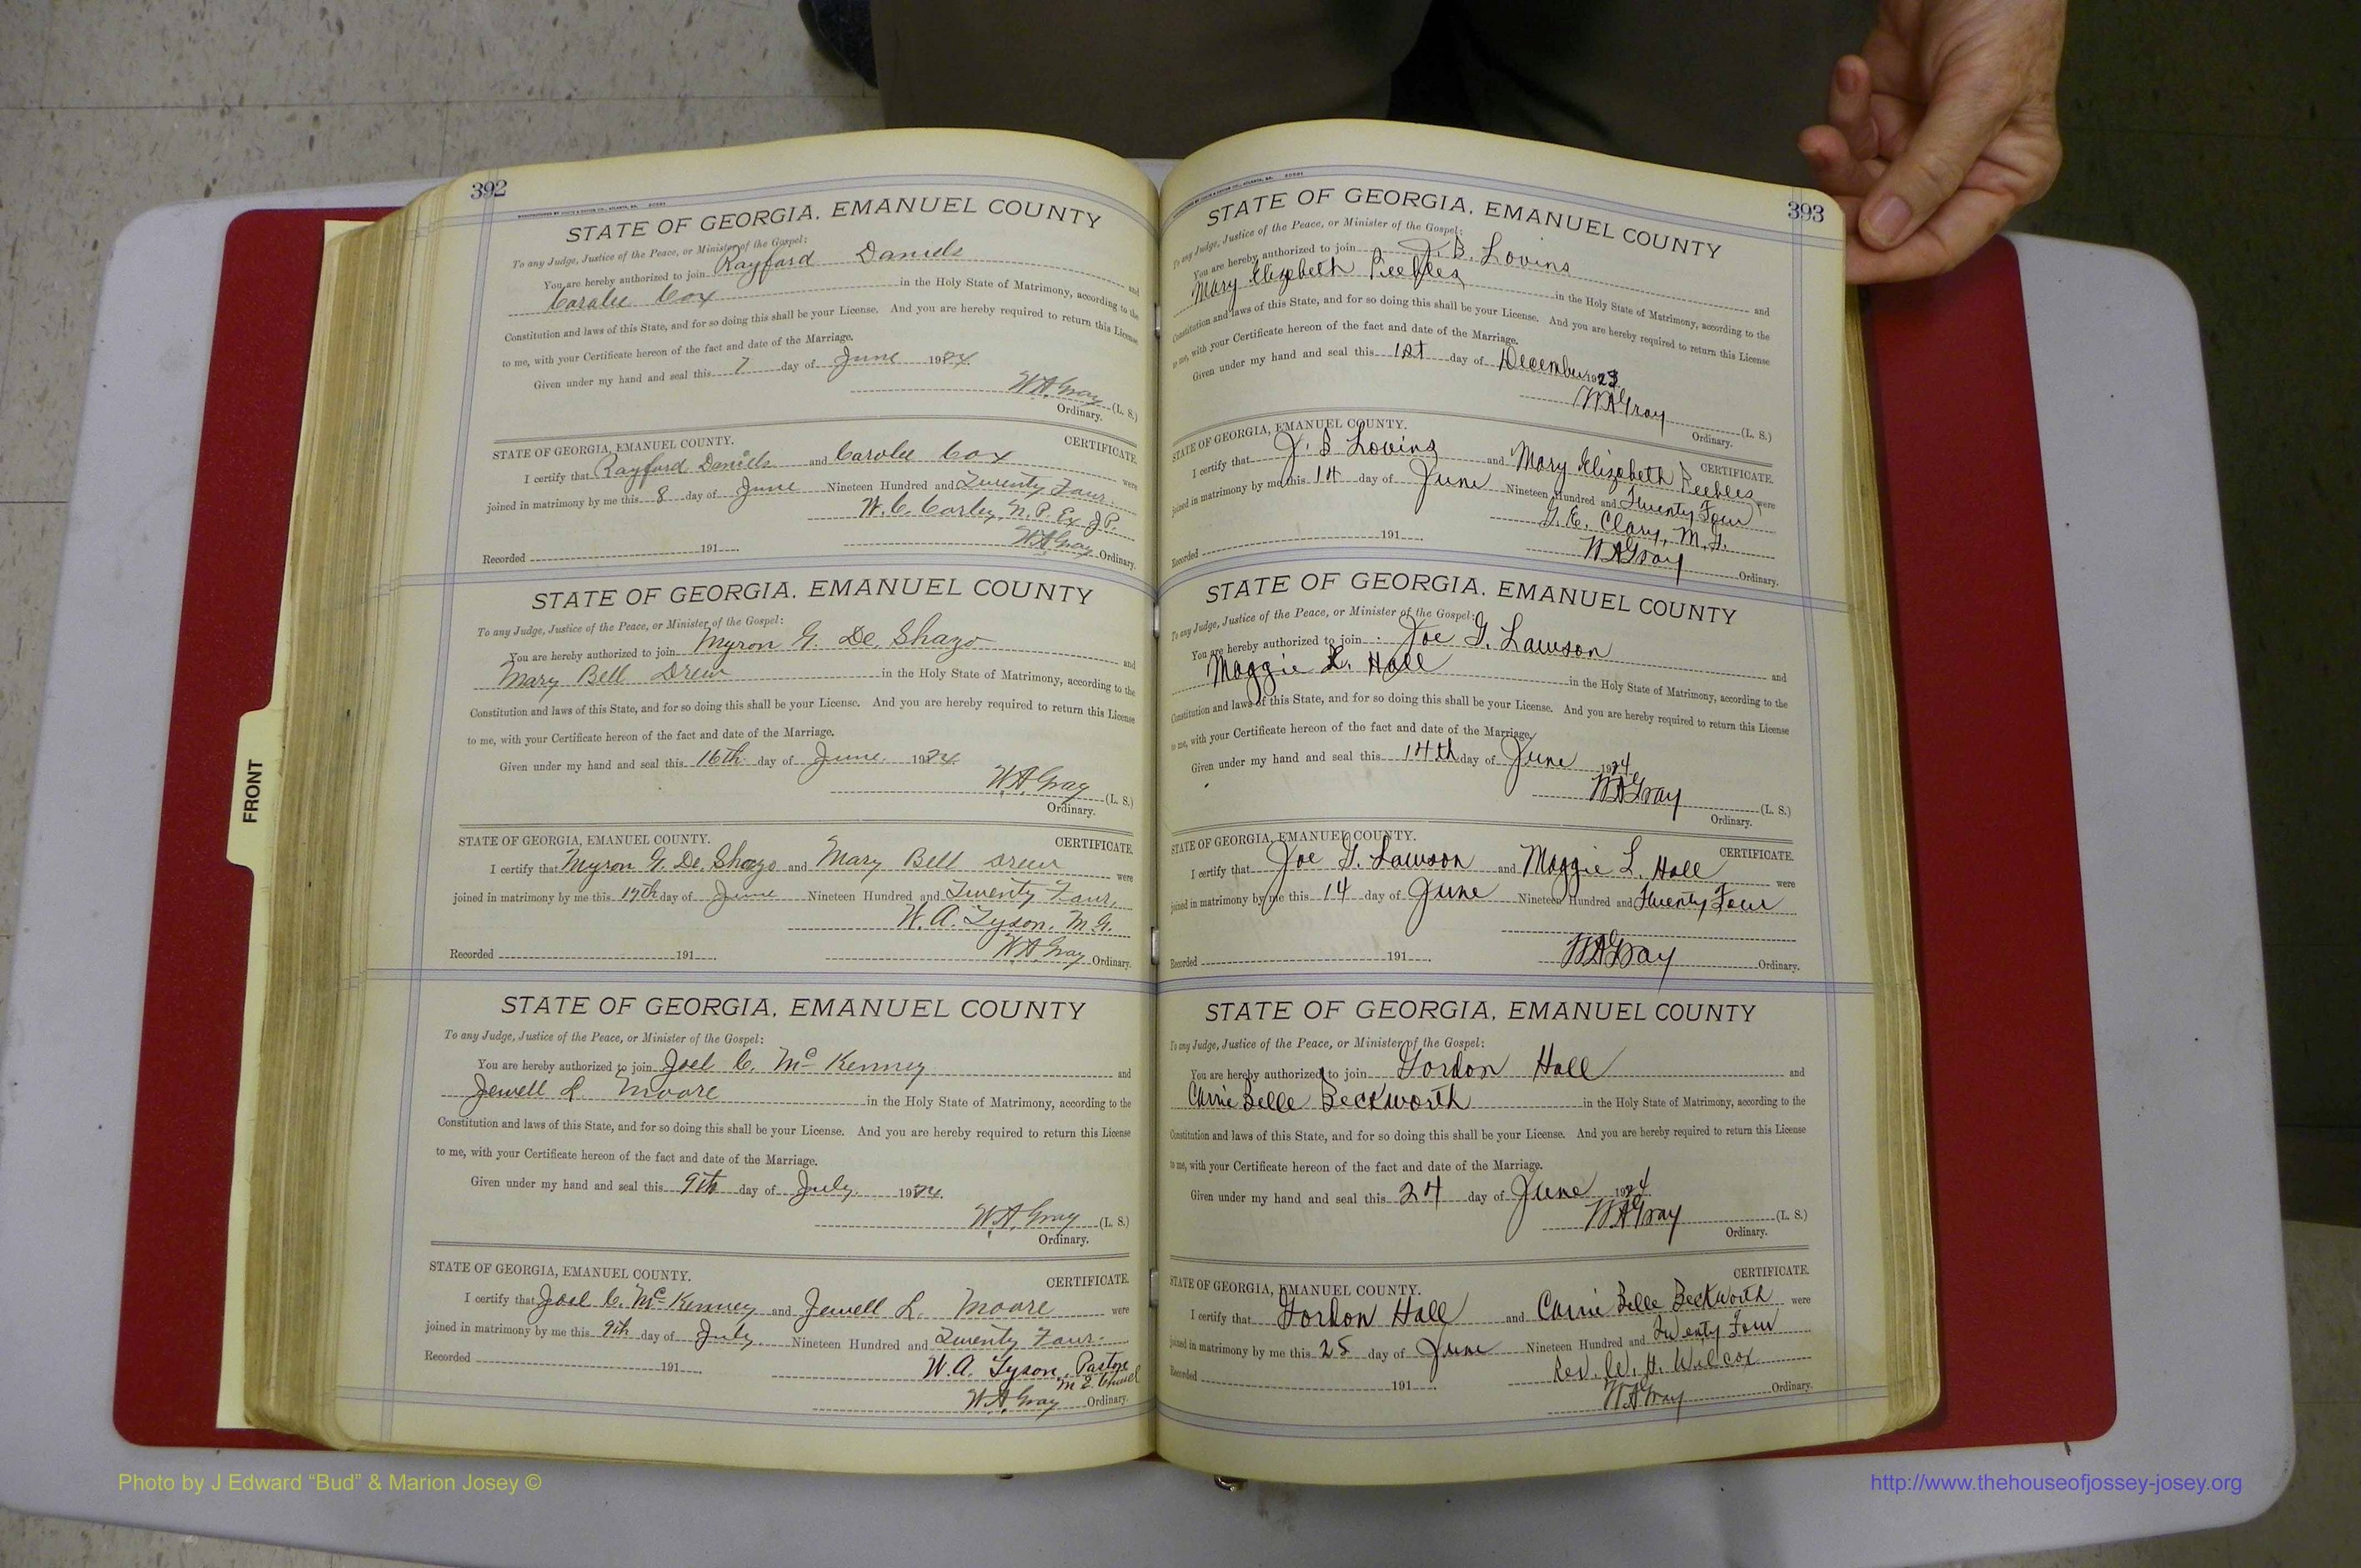 392
STATE OF GEORGIA, EMANUEL COUNTY
To any Judge, Justice of the Peace, or Minister of the Gospel:
You are hereby authorized to join Rayford Daniels and
Caralee Cox in the Holy State of Matrimony, according to the
Constitution and laws of this State, and for so doing this shall be your License. And you are hereby required to return this License
to me, with your Certificate hereon of the fact and date of the Marriage.
Given under my hand and seal this 7 day of June 1924
W.A. Gray (L. S.)
Ordinary.
STATE OF GEORGIA, EMANUEL COUNTY. CERTIFICATE
I certify that Rayford Daniels and Carolee Cox were
joined in matrimony by me this 8 day of June Nineteen Hundred and Twenty Four.
W. C. Corley, N. P. Ex J P.
Recorded 191 W.A. Gray Ordinary.
STATE OF GEORGIA, EMANUEL COUNTY
To any Judge, Justice of the Peace, or Minister of the Gospel:
You are hereby authorized to join Myron G. De. Shazo and
Mary Bell Drew in the Holy State of Matrimony, according to the
Constitution and laws of this State, and for so doing this shall be your License. And you are hereby required to return this License
to me, with your Certificate hereon of the fact and date of the Marriage.
Given under my hand and seal this 16th day of June. 1924.
W.A. Gray (L. S.)
Ordinary.
STATE OF GEORGIA, EMANUEL COUNTY. CERTIFICATE
I certify that Myron G. De. Shazo and Mary Bell Drew were
joined in matrimony by me this 17th day of June Nineteen Hundred and Twenty Four,
W. A. Tyson, M G.
Recorded 191 W.A. Gray Ordinary.
STATE OF GEORGIA, EMANUEL COUNTY
To any Judge, Justice of the Peace, or Minister of the Gospel:
You are hereby authorized to join Joel C. Mc Kenney and
Jewell L. Moore in the Holy State of Matrimony, according to the
Constitution and laws of this State, and for so doing this shall be your License. And you are hereby required to return this License
to me, with your Certificate hereon of the fact and date of the Marriage.
Given under my hand and seal this 9th day of July 1924.
W.A. Gray (L. S.)
Ordinary.
STATE OF GEORGIA, EMANUEL COUNTY. CERTIFICATE
I certify that Joel C. Mc Kenney and Jewell L. Moore were
joined in matrimony by me this 9th day of July. Nineteen Hundred and Twenty Four.
W. A. Tyson, Pastor
Recorded 191 M E Church
W.A. Gray Ordinary.
393
STATE OF GEORGIA, EMANUEL COUNTY
To any Judge, Justice of the Peace, or Minister of the Gospel:
You are hereby authorized to join J. B. Lovins and
Mary Elizabeth Peebles in the Holy State of Matrimony, according to the
Constitution and laws of this State, and for so doing this shall be your License. And you are hereby required to return this License
to me, with your Certificate hereon of the fact and date of the Marriage.
Given under my hand and seal this 1st day of December 1923
W A Gray (L. S.)
Ordinary.
STATE OF GEORGIA, EMANUEL COUNTY. CERTIFICATE
I certify that J. B Lovins and Mary Elizabeth Peebles were
joined in matrimony by me this 14 day of June Nineteen Hundred and Twenty Four
G. E. Clary, M. G.
Recorded 191 W A Gray Ordinary.
STATE OF GEORGIA, EMANUEL COUNTY
To any Judge, Justice of the Peace, or Minister of the Gospel:
You are hereby authorized to join Joe G. Lawson and
Maggie L. Hall in the Holy State of Matrimony, according to the
Constitution and laws of this State, and for so doing this shall be your License. And you are hereby required to return this License
to me, with your Certificate hereon of the fact and date of the Marriage.
Given under my hand and seal this 14th day of June 1924
W A Gray (L. S.)
Ordinary.
STATE OF GEORGIA, EMANUEL COUNTY. CERTIFICATE.
I certify that Joe G. Lawson and Maggie L. Hall were
joined in matrimony by me this 14 day of June Nineteen Hundred and Twenty Four
Recorded 191 W A Gray Ordinary.
STATE OF GEORGIA, EMANUEL COUNTY
To any Judge, Justice of the Peace, or Minister of the Gospel:
You are hereby authorized to join Gordon Hall and
Carrie Belle Beckworth in the Holy State of Matrimony, according to the
Constitution and laws of this State, and for so doing this shall be your License. And you are hereby required to return this License
to me, with your Certificate hereon of the fact and date of the Marriage.
Given under my hand and seal this 24 day of June 1924
W A Gray (L. S.)
Ordinary.
STATE OF GEORGIA, EMANUEL COUNTY. CERTIFICATE.
I certify that Gordon Hall and Carrie Belle Beckworth were
joined in matrimony by me this 25 day of June Nineteen Hundred and Twenty Four
Rev. W. H. Wilcox
Recorded 191 W A Gray Ordinary.
FRONT
Photo by J Edward “Bud” & Marion Josey ©
http://www.thehouseofjossey-josey.org